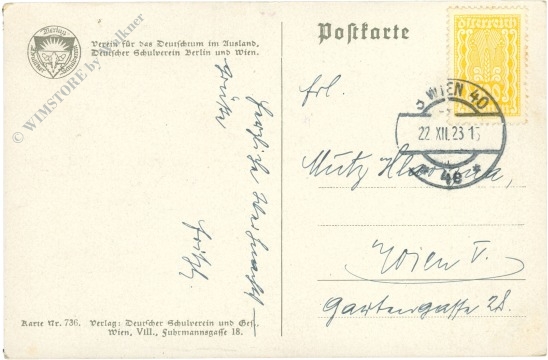 Verein für das Deutschtum im Ausland,
Deutscher Schulverein Berlin und Wien.
Postkarte
Österreich
WIEN 40
22 XII. 23 15
* 4e *
Frl.
Mutz
Wien V.
Gartengasse 28.
Herzliche Weihnachts-
grüße
Fritzl.
Karte Nr. 736. Verlag: Deutscher Schulverein und Ges.,
Wien, VIII., Fuhrmannsgasse 18.
© WIMSTORE by Falkner